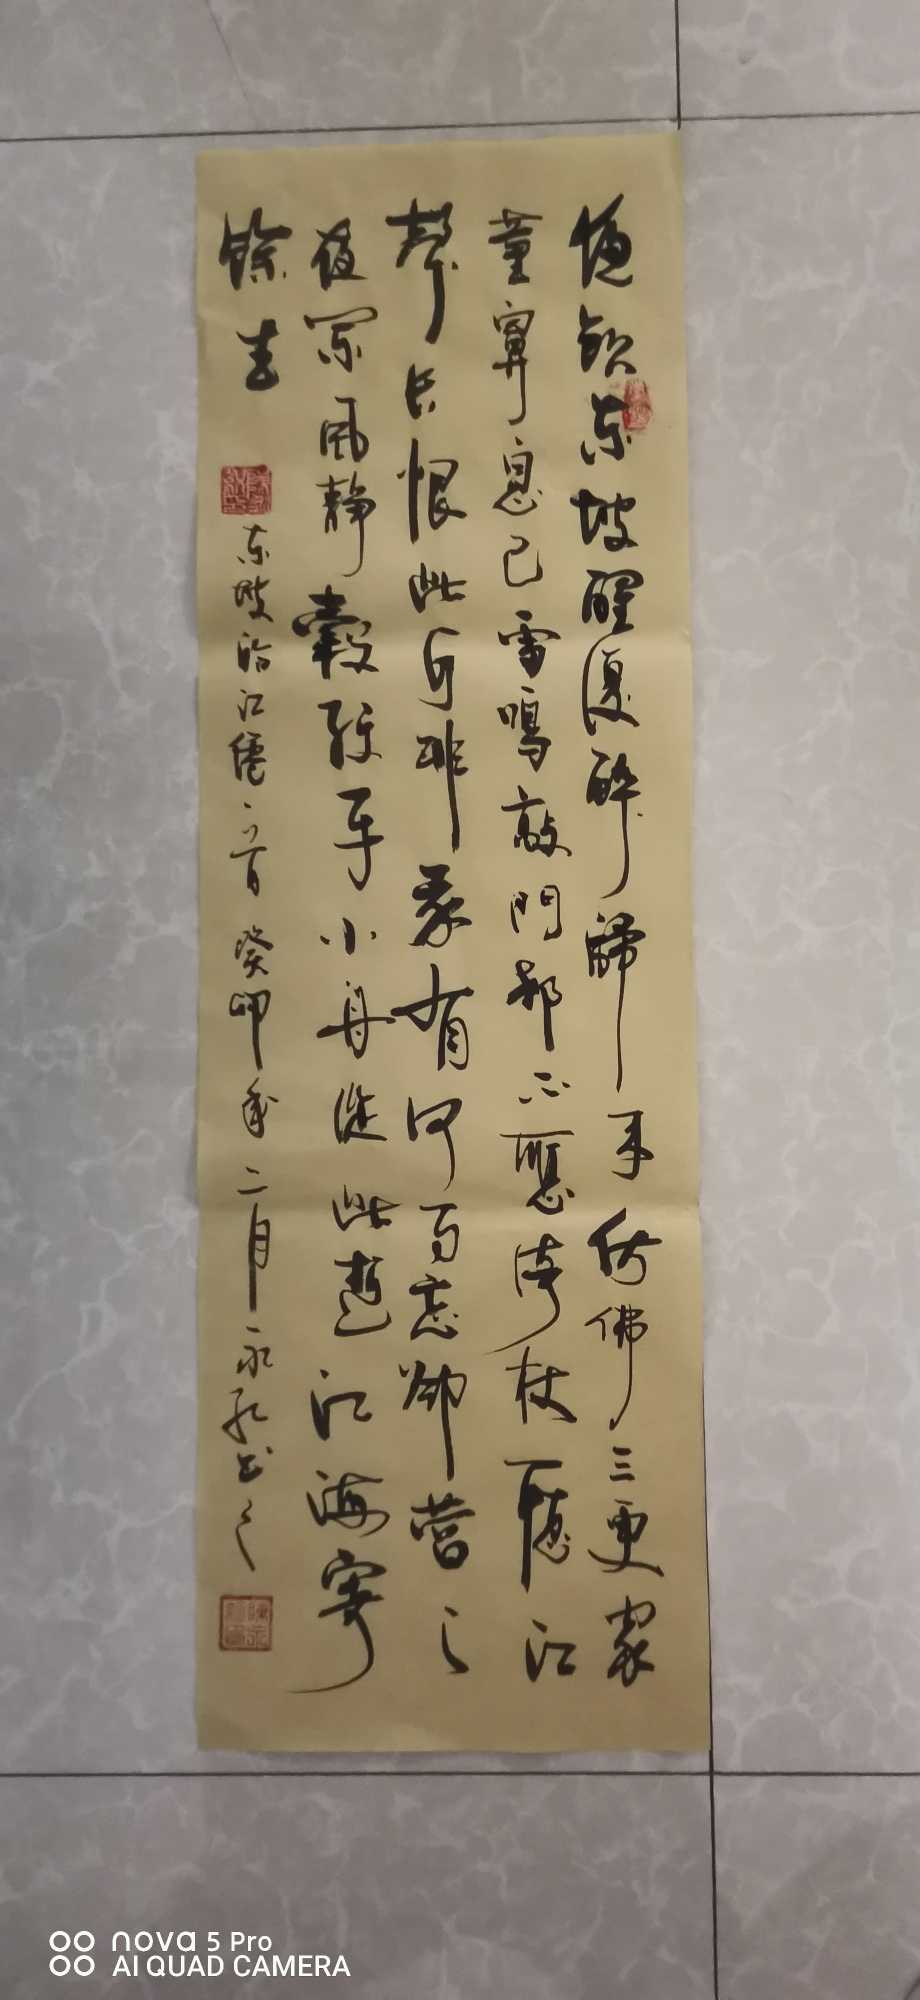 夜飲東坡醒復醉歸来彷彿三更家
童鼻息已雷鳴敲門都不應倚杖聽江
聲長恨此身非我有何時忘卻營〻
夜闌風靜縠紋平小舟從此逝江海寄
餘生
東坡臨江僊一首癸卯年二月永
nova 5 Pro
AI QUAD CAMERA